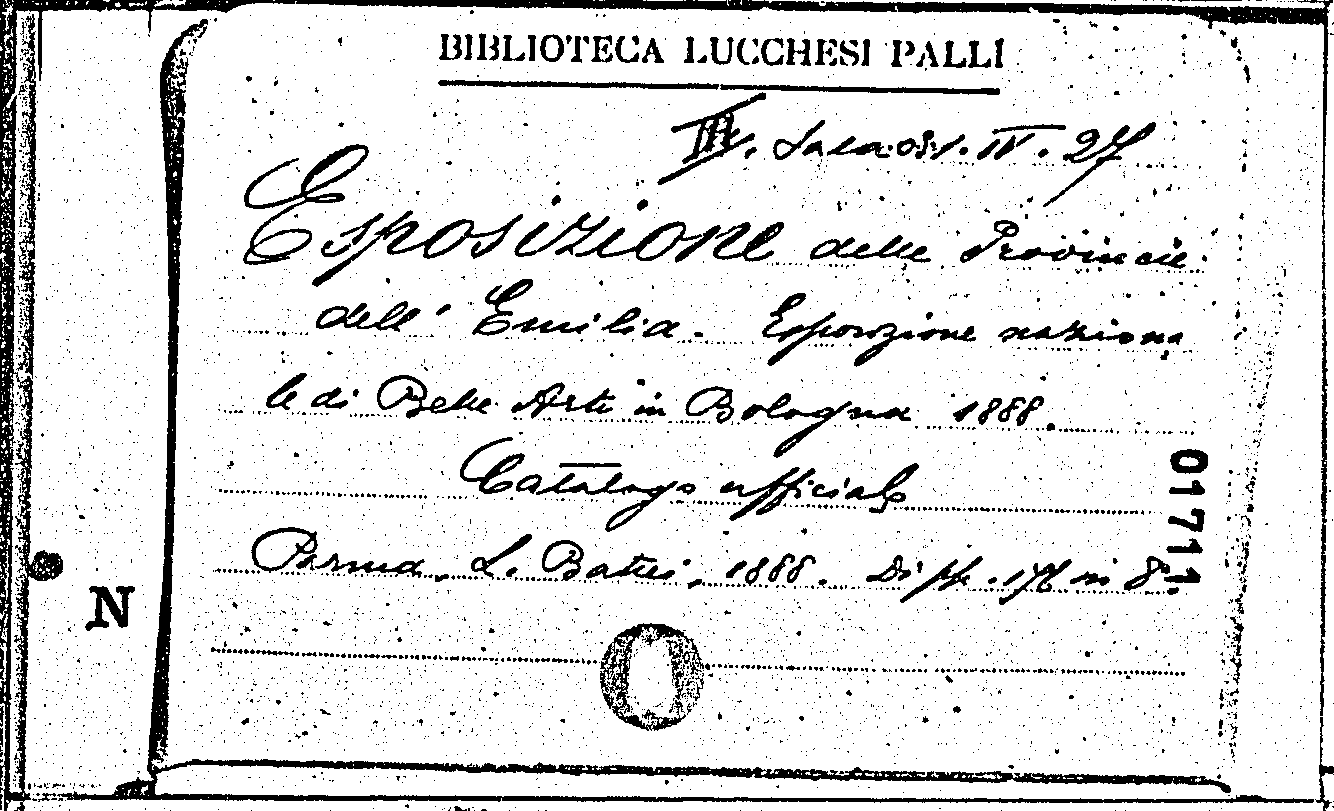 BIBLIOTECA LUCCHESI PALLI
III. Sala IV. 27
Esposizione delle Provincie
dell' Emilia. Esposizione naziona
le di Belle Arti in Bologna 1888.
Catalogo ufficiale
Parma, L. Battei, 1888. Di pp. 176 in 8º.
01711
N